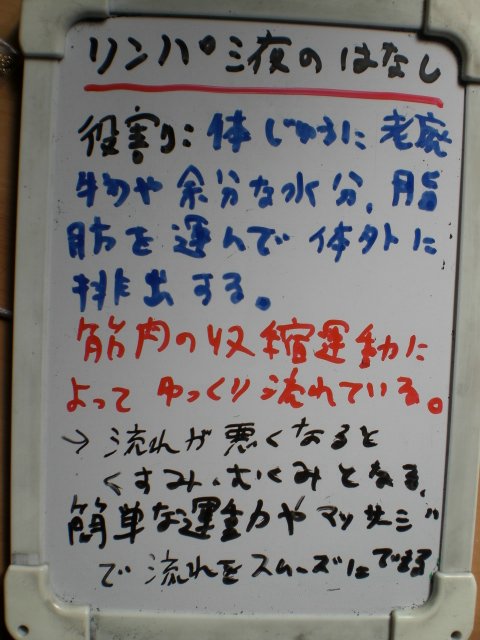 リンパ液のはなし
役割り：体じゅうに老廃
物や余分な水分、脂
肪を運んで体外に
排出する。
筋肉の収縮運動に
よってゆっくり流れている。
→流れが悪くなると
くすみ・むくみとなる、
簡単な運動やマッサージ
で流れをスムーズにできる